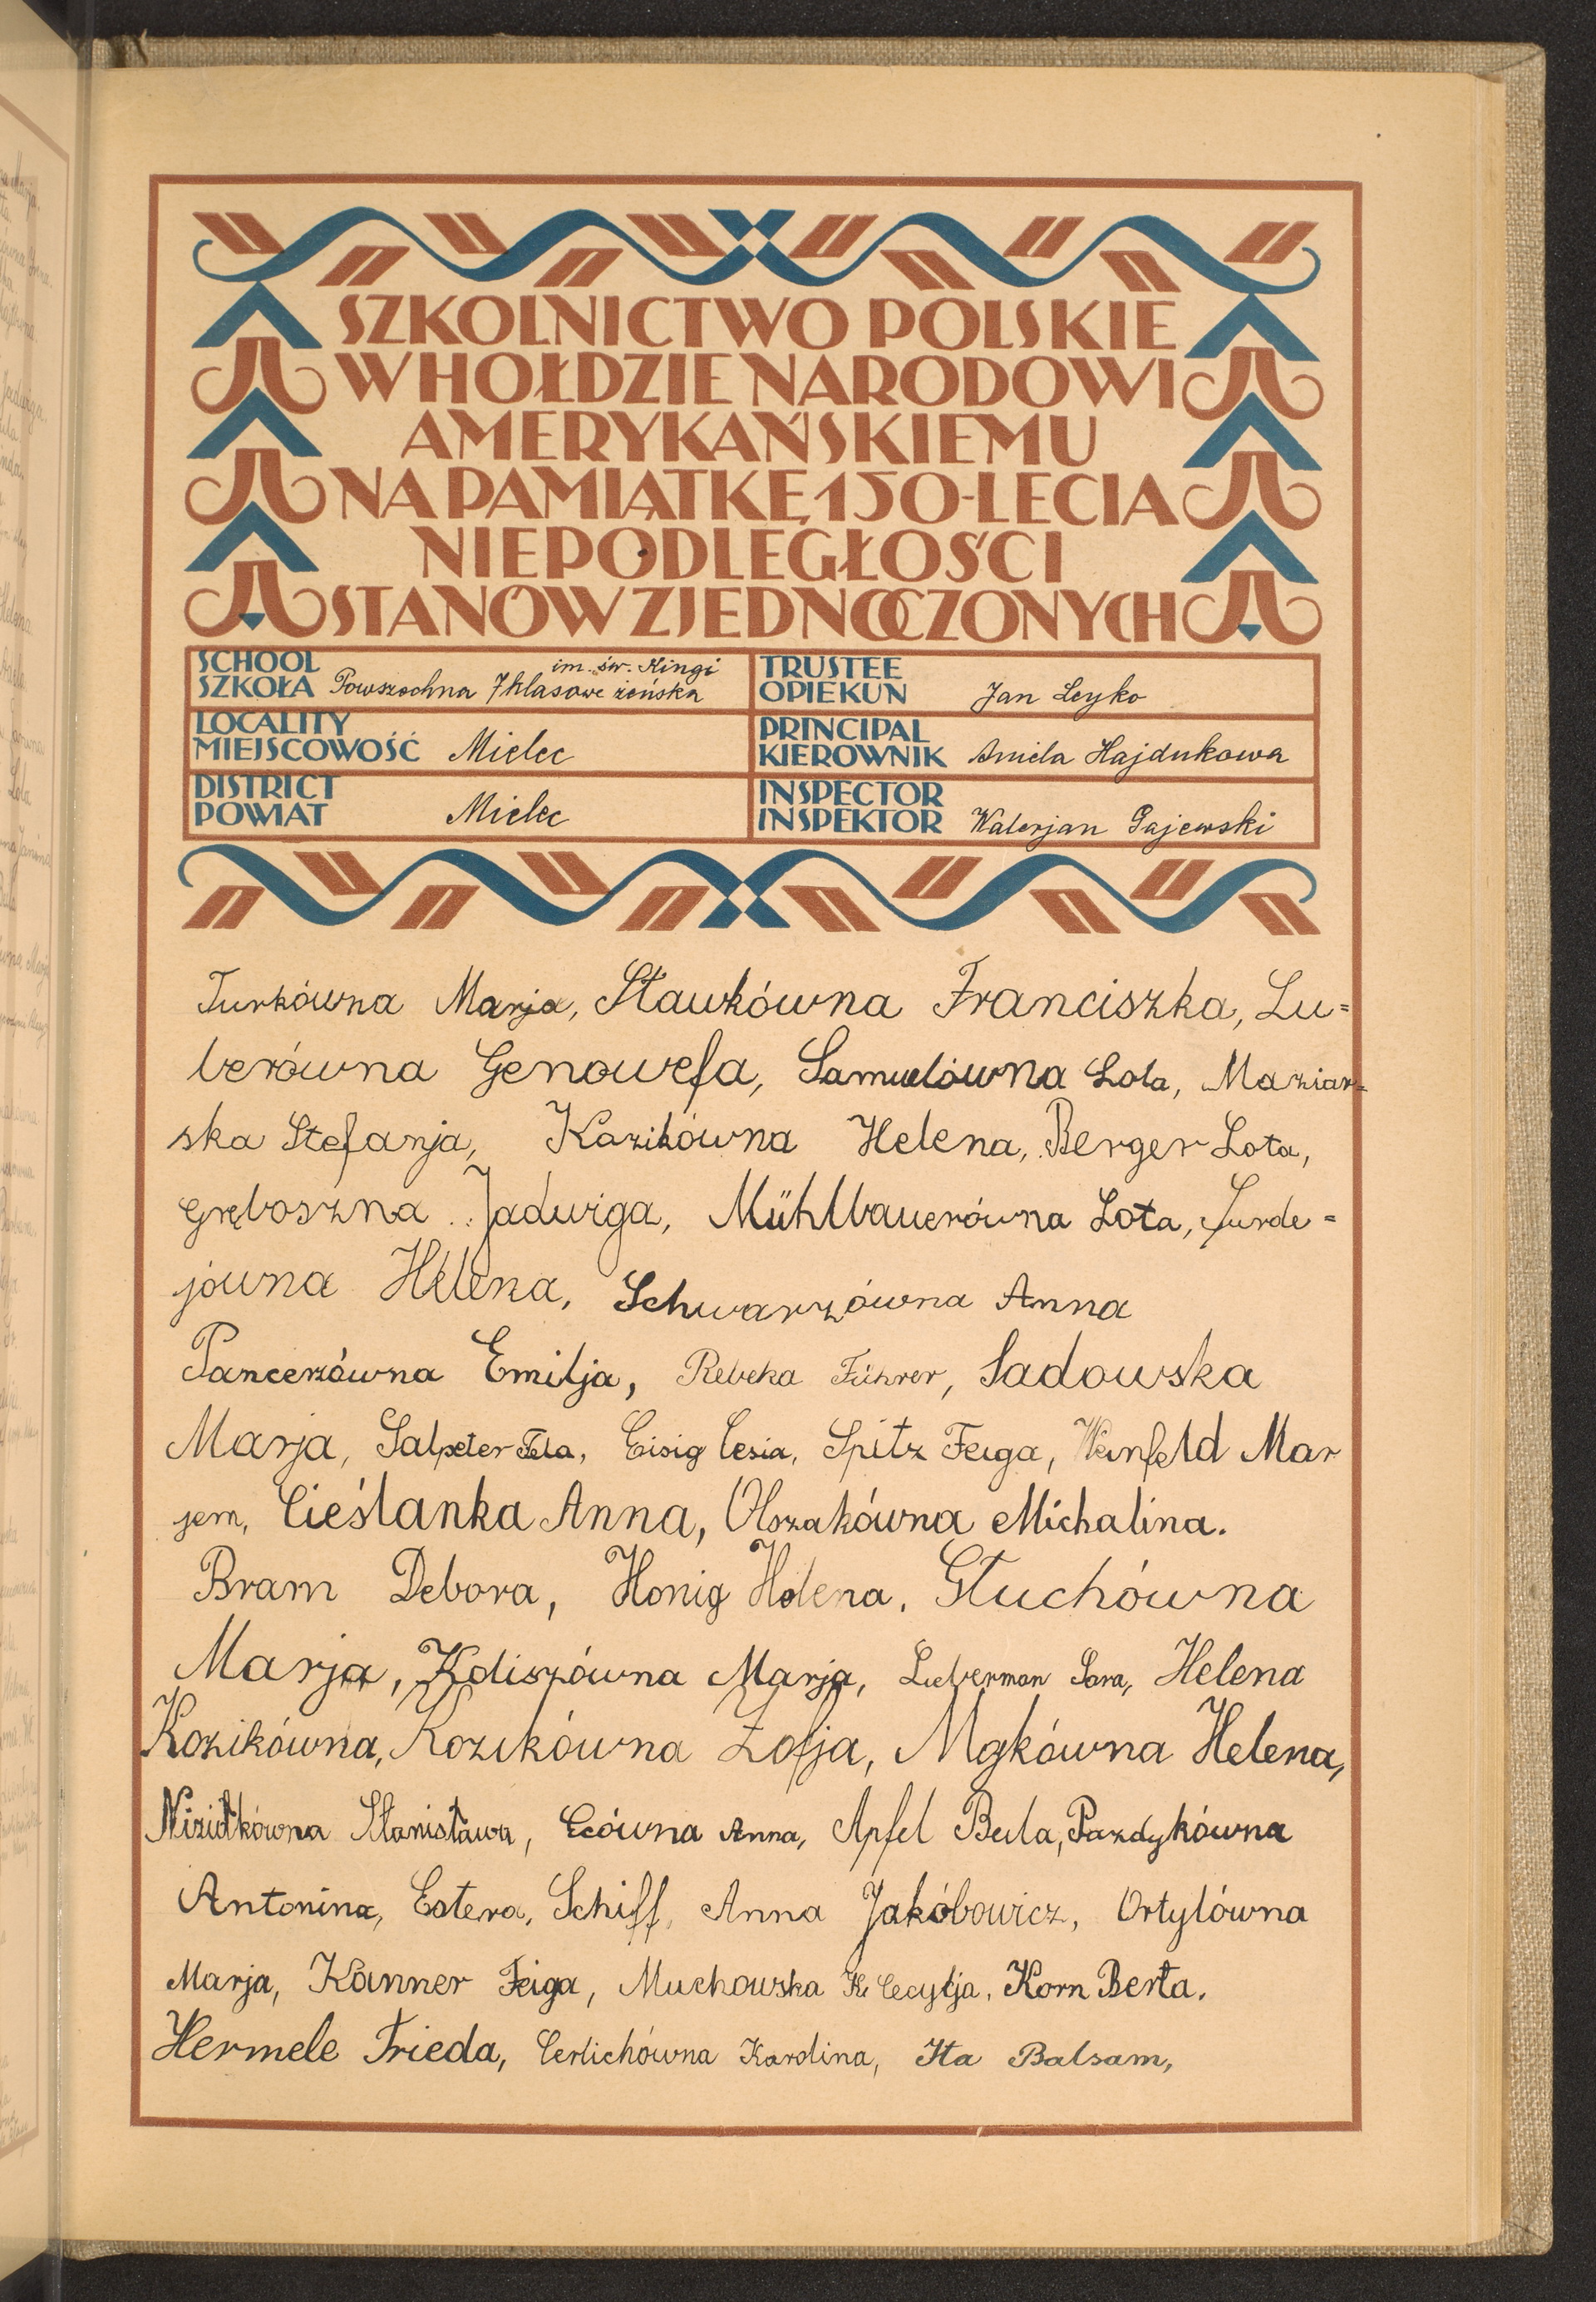 SZKOLNICTWO POLSKIE
W HOŁDZIE NARODOWI
AMERYKAŃSKIEMU
NA PAMIĄTKĘ 150-LECIA
NIEPODLEGŁOŚCI
STANÓW ZJEDNOCZONYCH
SCHOOL
SZKOŁA Powszechna 7 klasowe żeńska im. św. Kingi
TRUSTEE
OPIEKUN Jan Leyko
LOCALITY
MIEJSCOWOŚĆ Mielec
PRINCIPAL
KIEROWNIK Aniela Hajdukowa
DISTRICT
POWIAT Mielec
INSPECTOR
INSPEKTOR Walerjan Gajewski
Turkówna Marja, Stawkówna Franciszka, Lu=
berówna Genowefa, Samuelówna Lola, Maziar=
ska Stefanja, Kazikówna Helena, Berger Lota,
Gręboszna Jadwiga, Mühlbauerówna Lota, Jurde=
jówna Helena, Schwarzówna Anna
Pancerzówna Emilja, Rebeka Führer, Sadowska
Marja, Salpeter Fela, Eisig Cesia, Spitz Feiga, Weinfeld Mar
jem, Cieślanka Anna, Olszakówna Michalina.
Bram Debora, Honig Helena, Głuchówna
Marja, Kdliszówna Marja, Lieberman Sara, Helena
Kozikówna, Kozikówna Zofja, Mgkówna Helena,
Niziołkówna Stanisława, Ecówna Anna, Apfel Beila, Pazdykówna
Antonina, Estera, Schiff, Anna Jakóbowicz, Ortylówna
Marja, Kanner Feiga, Muchowska K. Cecylja, Korn Berta,
Hermele Frieda, Cerlichówna Karolina, Ita Balsam,